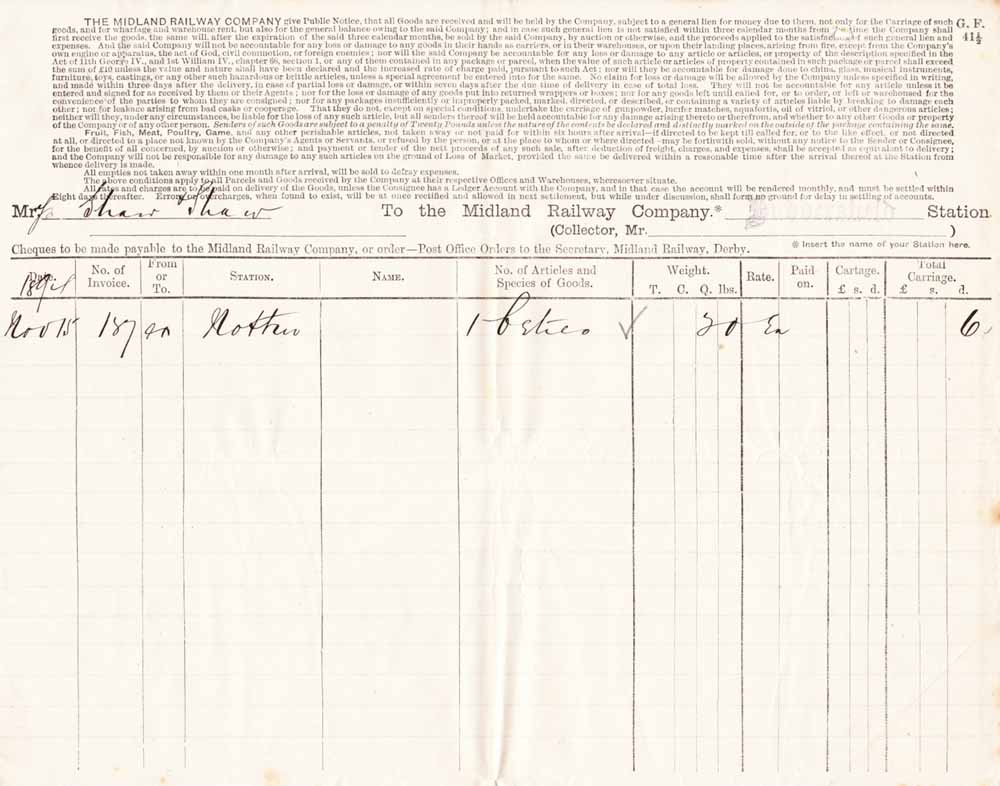 THE MIDLAND RAILWAY COMPANY give Public Notice, that all Goods are received and will be held by the Company, subject to a general lien for money due to them, not only for the Carriage of such
goods, and for wharfage and warehouse rent, but also for the general balance owing to the said Company; and in case such general lien is not satisfied within three calendar months from time the Company shall
first receive the goods, the same will, after the expiration of the said three calendar months, be sold by the said Company, by auction or otherwise, and the proceeds applied to the satisfaction of such general lien and
expenses. And the said Company will not be accountable for any loss or damage to any goods in their hands as carriers, or in their warehouses, or upon their landing places, arising from fire, except from the Company's
own engine or apparatus, the act of God, civil commotion, or foreign enemies; nor will the said Company be accountable for any loss or damage to any article or articles, or property of the description specified in the
Act of 11th George IV., and 1st William IV., chapter 68, section 1, or any of them contained in any package or parcel, when the value of such article or articles of property contained in such package or parcel shall exceed
the sum of £10 unless the value and nature shall have been declared and the increased rate of charge paid, pursuant to such Act; nor will they be accountable for damage done to china, glass, musical instruments,
furniture, toys, castings, or any other such hazardous or brittle articles, unless a special agreement be entered into for the same. No claim for loss or damage will be allowed by the Company unless specified in writing,
and made within three days after the delivery, in case of partial loss or damage, or within seven days after the due time of delivery in case of total loss. They will not be accountable for any article unless it be
entered and signed for as received by them or their Agents; nor for the loss or damage of any goods put into returned wrappers or boxes; nor for any goods left until called for, or to order, or left or warehoused for the
convenience of the parties to whom they are consigned; nor for any packages insufficiently or improperly packed, marked, directed, or described, or containing a variety of articles liable by breaking to damage each
other; nor for leakage arising from bad casks or cooperage. That they do not, except on special conditions, undertake the carriage of gunpowder, lucifer matches, aquafortis, oil of vitriol, or other dangerous articles;
neither will they, under any circumstances, be liable for the loss of any such article, but all senders thereof will be held accountable for any damage arising thereto or therefrom, and whether to any other Goods or property
of the Company or of any other person. Senders of such Goods are subject to a penalty of Twenty Pounds unless the nature of the contents be declared and distinctly marked on the outside of the package containing the same.
Fruit, Fish, Meat, Poultry, Game, and any other perishable articles, not taken away or not paid for within six hours after arrival—if directed to be kept till called for, or to the like effect, or not directed
at all, or directed to a place not known by the Company's Agents or Servants, or refused by the person, or at the place to whom or where directed—may be forthwith sold, without any notice to the Sender or Consignee,
for the benefit of all concerned, by auction or otherwise; and payment or tender of the next proceeds of any such sale, after deduction of freight, charges, and expenses, shall be accepted as equivalent to delivery;
and the Company will not be responsible for any damage to any such articles on the ground of Loss of Market, provided the same be delivered within a reasonable time after the arrival thereof at the Station from
whence delivery is made.
All empties not taken away within one month after arrival, will be sold to defray expenses.
The above conditions apply to all Parcels and Goods received by the Company at their respective Offices and Warehouses, wheresoever situate.
All rates and charges are to be paid on delivery of the Goods, unless the Consignee has a Ledger Account with the Company, and in that case the account will be rendered monthly, and must be settled within
Eight days thereafter. Errors or overcharges, when found to exist, will be at once rectified and allowed in next settlement, but while under discussion, shall form no ground for delay in settling of accounts.
G. F.
41½
Mr Shaw Shaw To the Midland Railway Company.* Station.
(Collector, Mr. )
Cheques to be made payable to the Midland Railway Company, or order—Post Office Orders to the Secretary, Midland Railway, Derby. * Insert the name of your Station here.
Date. No. of Invoice. From or To. STATION. NAME. No. of Articles and Species of Goods. Weight. T. C. Q. lbs. Rate. Paid on. Cartage. £ s. d. Total Carriage. £ s. d.
Nov 15 187 Nottm 1 20 6